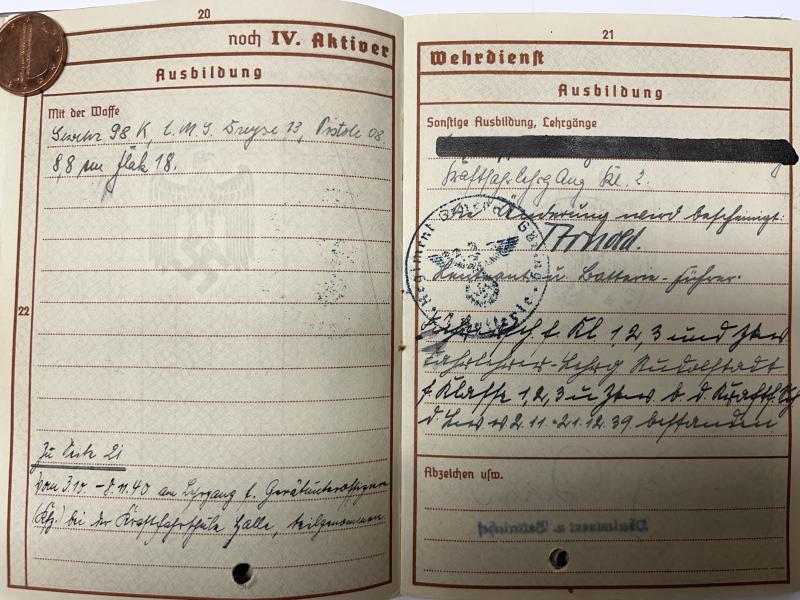 20
noch IV. Aktiver
Ausbildung
Mit der Waffe
Gewehr 98 K, l. M. G. Dreyse 13, Pistole 08
8,8 cm Flak 18.
22
Zu Seite 21
Vom 3.10. - 8.11.40 am Lehrgang f. Geräteunteroffiziere
(Kfz.) bei der Kraftfahrschule Halle, teilgenommen.
21
Wehrdienst
Ausbildung
Sonstige Ausbildung, Lehrgänge
Kraftfahrlehrgang Kl. 2.
Die Änderung wird bescheinigt:
Arnold.
Leutnant u. Batterie-führer.
Regiment General Göring
f. Kl 1, 2, 3 und Zkw
Fahrlehrer-Lehrg Rudolstadt
f Klasse 1, 2, 3 u Zkw b. d. Kraftf. Sch
d. Lw v 2.11.-21.12.39 bestanden
Abzeichen usw.